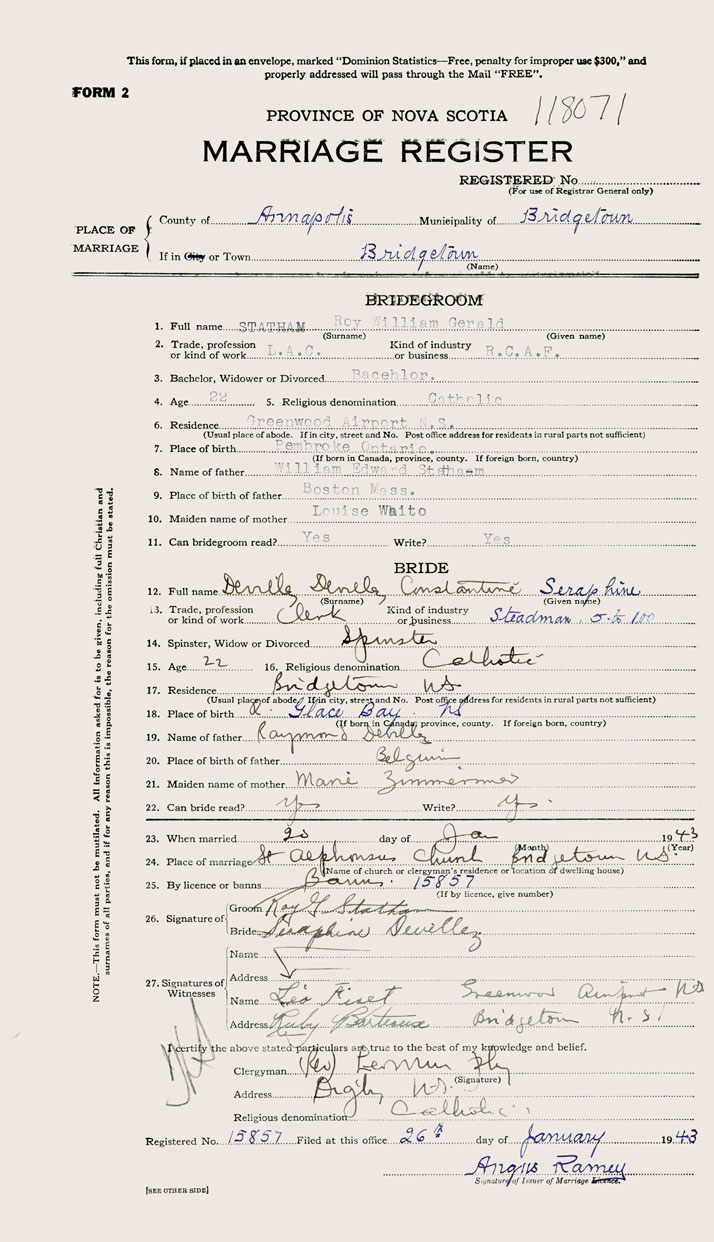 This form, if placed in an envelope, marked "Dominion Statistics—Free, penalty for improper use $300," and
properly addressed will pass through the Mail "FREE".
FORM 2
PROVINCE OF NOVA SCOTIA 118071
MARRIAGE REGISTER
REGISTERED No
(For use of Registrar General only)
PLACE OF MARRIAGE
County of Annapolis Municipality of Bridgetown
If in City or Town Bridgetown
(Name)
BRIDEGROOM
1. Full name STATHAM Roy William Gerald
(Surname) (Given name)
2. Trade, profession or kind of work L.A.C. Kind of industry or business R.C.A.F.
3. Bachelor, Widower or Divorced Bacehlor.
4. Age 22 5. Religious denomination Catholic
6. Residence Greenwood Airport N.S.
(Usual place of abode. If in city, street and No. Post office address for residents in rural parts not sufficient)
7. Place of birth Pembroke Ontario.
(If born in Canada, province, county. If foreign born, country)
8. Name of father William Edward Statham
9. Place of birth of father Boston Mass.
10. Maiden name of mother Louise Waito
11. Can bridegroom read? Yes Write? Yes
BRIDE
12. Full name Devillez Devillez Constantine Seraphine
(Surname) (Given name)
13. Trade, profession or kind of work Clerk Kind of industry or business Steadman 5 to 100
14. Spinster, Widow or Divorced Spinster
15. Age 22 16. Religious denomination Catholic
17. Residence Bridgetown NS
(Usual place of abode. If in city, street and No. Post office address for residents in rural parts not sufficient)
18. Place of birth Glace Bay NS
(If born in Canada, province, county. If foreign born, country)
19. Name of father Raymond Devillez
20. Place of birth of father Belgium
21. Maiden name of mother Marie Zimmermer
22. Can bride read? yes Write? yes.
23. When married 20 day of Jan 1943
(Month) (Year)
24. Place of marriage St Alphonsus Church Bridgetown NS.
(Name of church or clergyman's residence or location of dwelling house)
25. By licence or banns Banns. 15857
(If by licence, give number)
26. Signature of
Groom Roy G Statham
Bride Seraphine Devillez
27. Signatures of Witnesses
Name
Address
Name Leo Fiset Greenwood Airport NS
Address Ruby Barteaux Bridgetown N.S.
I certify the above stated particulars are true to the best of my knowledge and belief.
Clergyman (Rev)
(Signature)
Address Digby N.S.
Religious denomination Catholic
Registered No. 15857 Filed at this office 26th day of January 1943
Angus Ramey
Signature of Issuer of Marriage Licence.
[SEE OTHER SIDE]
NOTE.—This form must not be mutilated. All information asked for is to be given, including full Christian and
surnames of all parties, and if for any reason this is impossible, the reason for the omission must be stated.